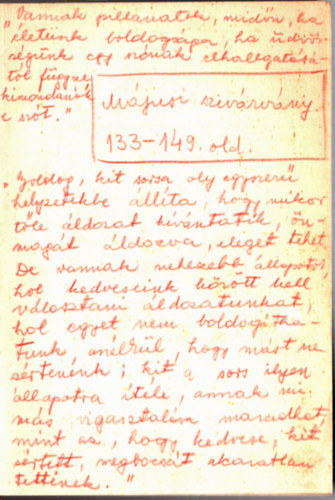 „Vannak pillanatok, midőn, ha
életünk boldogsága, ha üdvös-
ségünk egy szónak elhallgatásá-
tól függne,
kimondanók
e szót.”
Májusi szivárvány.
133–149. old.
„Boldog, kit sorsa oly egyszerű
helyzetekbe állíta, hogy mikor
tőle áldozat kívántatik, ön-
magát áldozva, eleget tehet.
De vannak nehezebb állapotok
hol kedveseink között kell
választani áldozatunkat,
hol egyet nem boldogítha-
tunk anélkül, hogy mást ne
sértenénk; kit a sors ilyen
állapotra ítéle, annak mi
más vigasztalás maradhat,
mint az, hogy kedvese, kit
sértett, megbocsát akaratlan
tettének.”